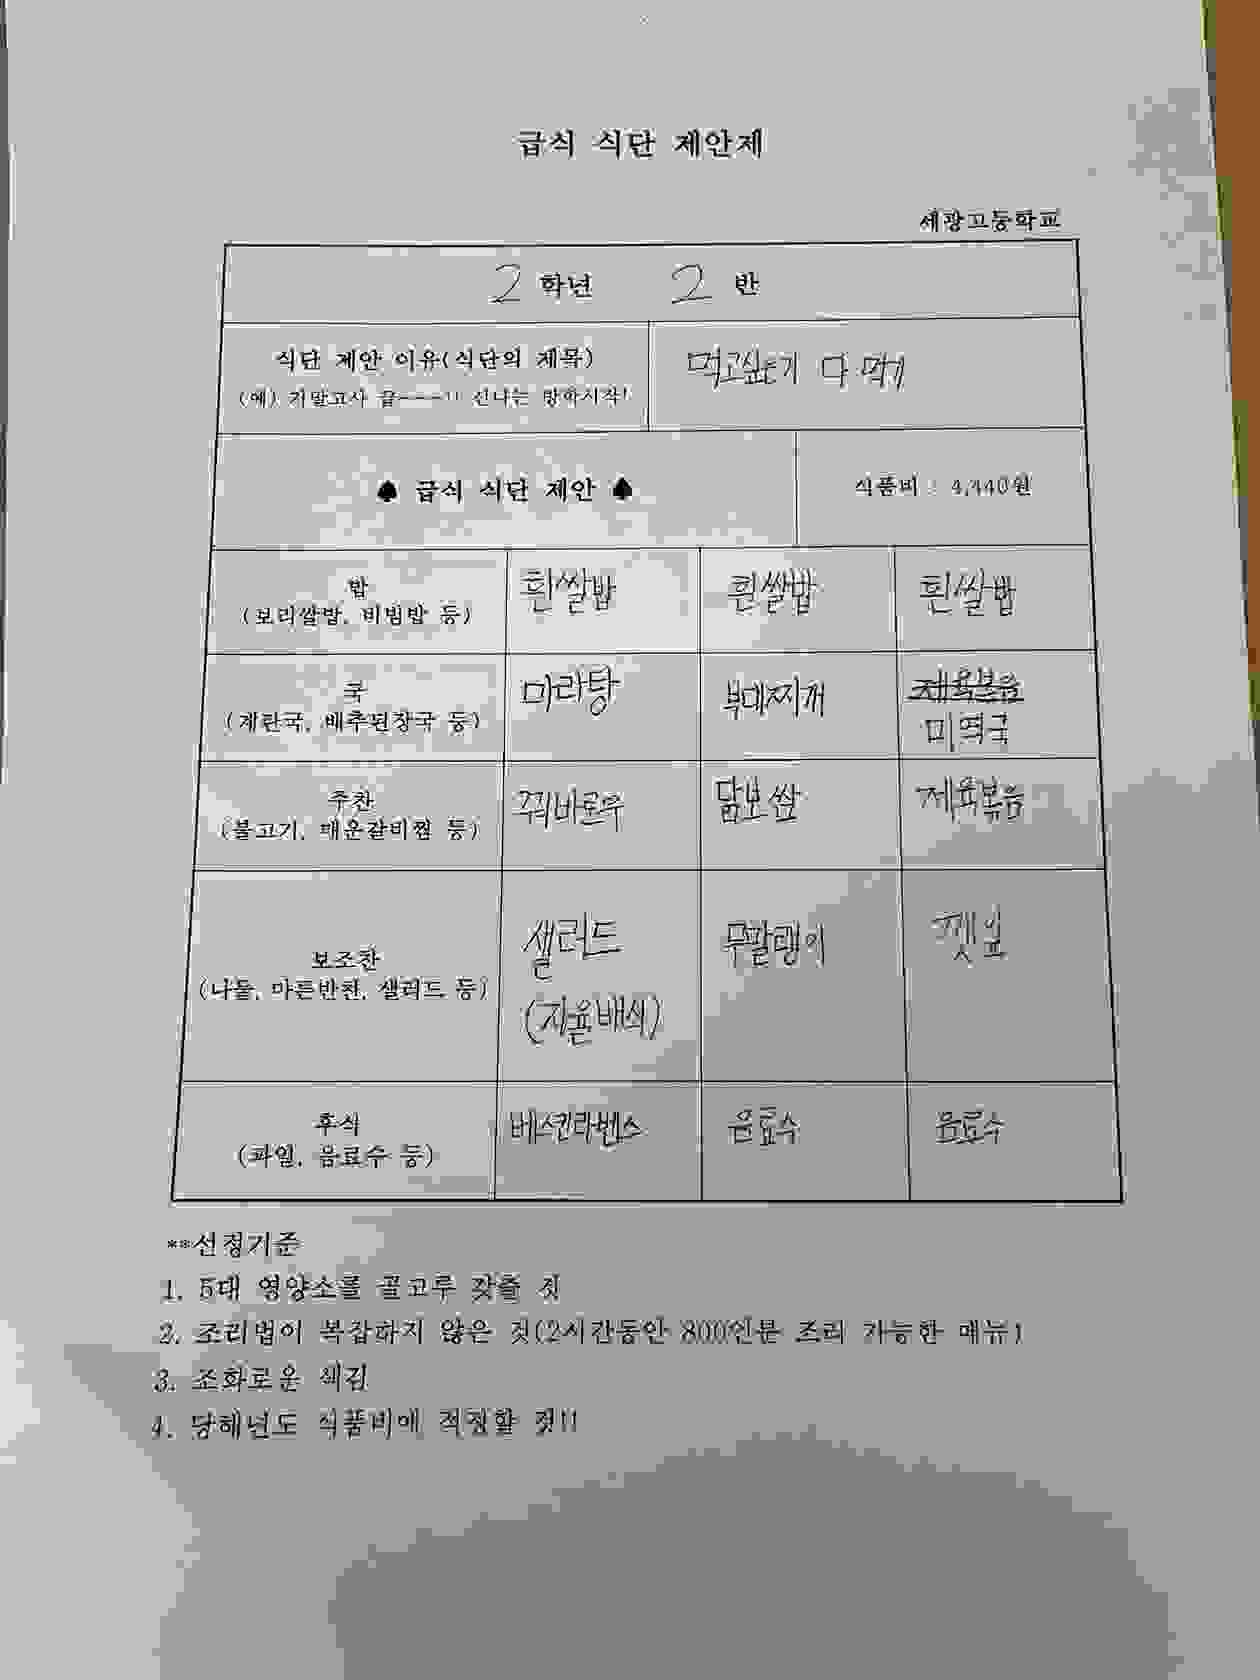 급식 식단 제안제
세광고등학교
2 학년 2 반
식단 제안 이유(식단의 제목)
(예) 기말고사 끝---!! 신나는 방학시작!
먹고싶은거 다 먹기
♠ 급식 식단 제안 ♠
식품비 : 4,440원
밥
(보리쌀밥, 비빔밥 등)
흰쌀밥
흰쌀밥
흰쌀밥
국
(계란국, 배추된장국 등)
마라탕
부대찌개
제육볶음
미역국
주찬
(불고기, 매운갈비찜 등)
꿔바로우
닭보쌈
제육볶음
보조찬
(나물, 마른반찬, 샐러드 등)
샐러드
(자율배식)
무말랭이
깻잎
후식
(과일, 음료수 등)
베스킨라벤스
음료수
음료수
**선정기준
1. 5대 영양소를 골고루 갖출 것
2. 조리법이 복잡하지 않은 것(2시간동안 800인분 조리 가능한 메뉴)
3. 조화로운 색감
4. 당해년도 식품비에 적정할 것!!